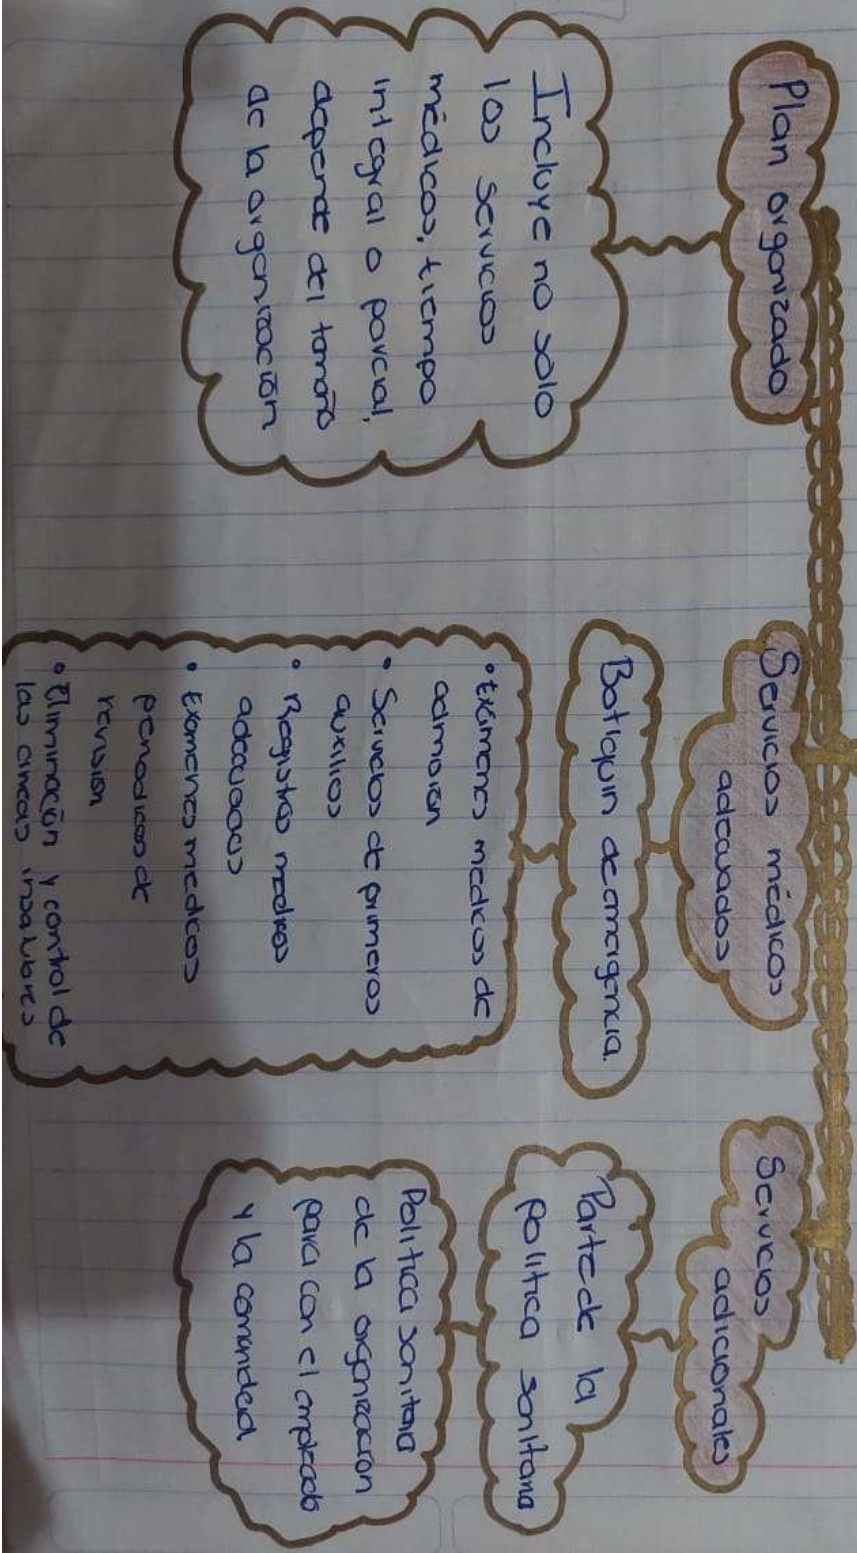 Plan organizado
Incluye no solo
los servicios
médicos, tiempo
integral o parcial,
depende del tamaño
de la organización
Servicios médicos
adecuados
Botiquin de emergencia.
• Exámenes medicos de
admisión
• Servicios de primeros
auxilios
• Registros medicos
adecuados
• Exámenes medicos
periodicos de
revision
• Eliminación y control de
las areas insalubres
Servicios
adicionales
Parte de la
politica sanitaria
Politica sanitaria
de la organización
para con el empleado
y la comunidad